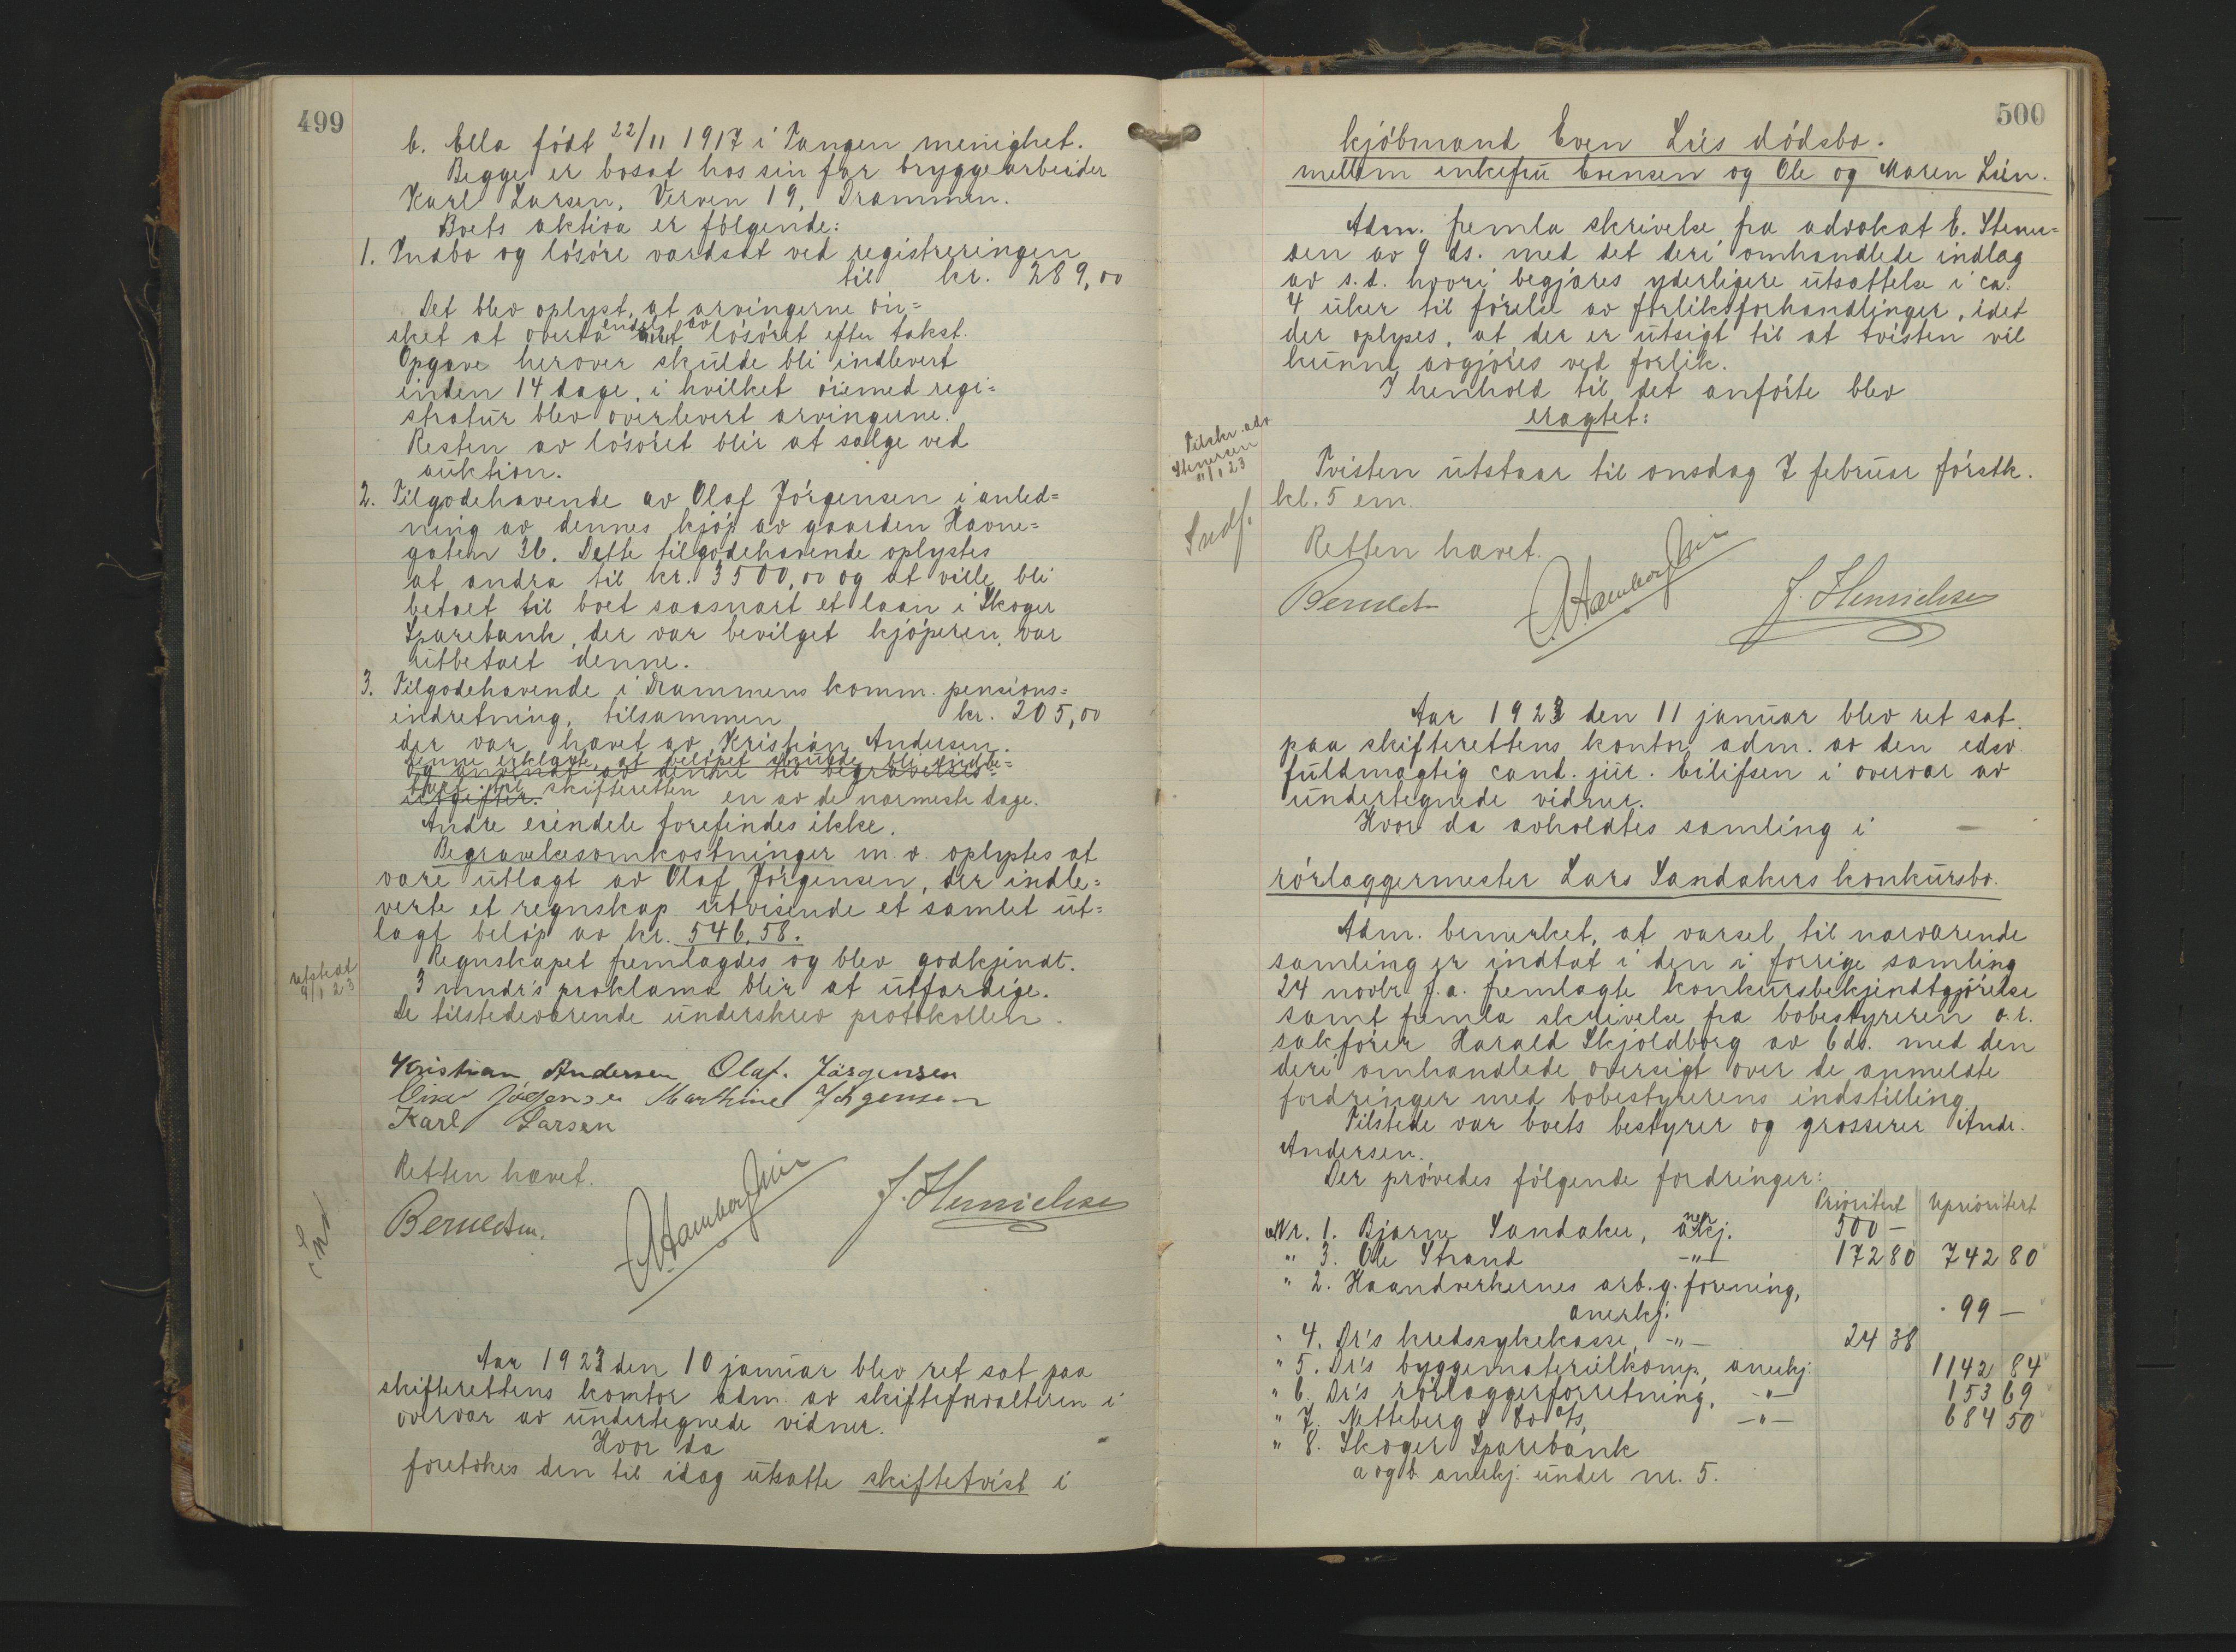 499
b. Ella født 22/11 1917 i Tangen menighet.
Begge er bosat hos sin far bryggearbeider
Karl Larsen, Verven 19, Drammen.
Boets aktiva er følgende:
1. Indbo og løsøre værdsat ved registreringen
til kr. 289,00
Det blev oplyst, at arvingerne øn=
sket at overta endel av løsøret efter takst.
Opgave herover skulde bli indlevert
inden 14 dage, i hvilket øiemed regi=
stratur blev overlevert arvingerne.
Resten av løsøret blir at sælge ved
auktion.
2. Tilgodehavende av Olaf Jørgensen i anled=
ning av dennes kjøp av gaarden Havne=
gaten 36. Dette tilgodehavende oplystes
at andra til kr. 3500,00 og at ville bli
betalt til boet saasnart et laan i Skoger
Sparebank, der var bevilget kjøperen, var
utbetalt denne.
3. Tilgodehavende i Drammens komm. pensions=
indretning, tilsammen kr. 205,00
der var hævet av Kristian Andersen.
Denne erklærte, at beløpet skulde bli indbe=
og anvendt av denne til begravelses=
talt til skifteretten en av de nærmeste dage.
utgifter.
Andre eiendele forefindes ikke.
Begravelsesomkostninger m.v. oplystes at
være utlagt av Olaf Jørgensen, der indle=
verte et regnskap utvisende et samlet ut=
lagt beløp av kr. 546,58.
Regnskapet fremlagdes og blev godkjendt.
utstedt
9/1 23
3 mndr's proklama blir at utfærdige.
De tilstedeværende underskrev protokollen.
Kristian Andersen Olaf. Jørgensen
Jørgensen Marthine Jørgensen
Karl Larsen
Retten hævet.
Berntsen. J. Henrichsen
Aar 1923 den 10 januar blev ret sat paa
skifterettens kontor adm. av skifteforvalteren i
overvær av undertegnede vidner.
Hvor da
foretokes den til idag utsatte skiftetvist i
500
kjøbmand Even Liis dødsbo.
mellem enkefru Evensen og Ole og Maren Lien.
Adm. fremla skrivelse fra advokat E. Stener=
sen av 9 ds. med det deri omhandlede indlæg
av s.d. hvori begjæres yderligere utsættelse i ca.
4 uker til førelse av forliksforhandlinger, idet
der oplyses, at der er utsigt til at tvisten vil
kunne avgjøres ved forlik.
I henhold til det anførte blev
eragtet:
Tilskr. adv
Stenersen
11/1 23
Tvisten utstaar til onsdag 7 februar førstk.
kl. 5 em.
Indf.
Retten hævet.
Berntsen J. Henrichsen
Aar 1923 den 11 januar blev ret sat
paa skifterettens kontor adm. av den edsv.
fuldmægtig cand. jur. Eilifsen i overvær av
undertegnede vidner.
Hvor da avholdtes samling i
rørlæggermester Lars Sandakers konkursbo.
Adm. bemerket, at varsel til nærværende
samling er indtat i den i forrige samling
24 novbr. f.a. fremlagte konkursbekjendtgjørelse
samt fremla skrivelse fra bobestyreren o.r.
sakfører Harald Skjoldborg av 6 ds. med den
deri omhandlede oversigt over de anmeldte
fordringer med bobestyrerens indstilling.
Tilstede var boets bestyrer og grosserer Andr.
Andersen.
Der prøvedes følgende fordringer:
Prioritert Uprioritert
Nr. 1. Bjarne Sandaker, anerkj. 500 —
" 3. Ole Strand —"— 172 80 742 80
" 2. Haandverkernes arb.g.forening,
anerkj. 99 —
" 4. Dr's kredssykekasse, —"— 24 38
" 5. Dr's byggematerialkomp., anerkj. 1142 84
" 6. Dr's rørlæggerforretning, —"— 153 69
" 7. Netteberg & Co A/s, —"— 684 50
" 8. Skoger Sparebank
a og b anerkj. under nr. 5.